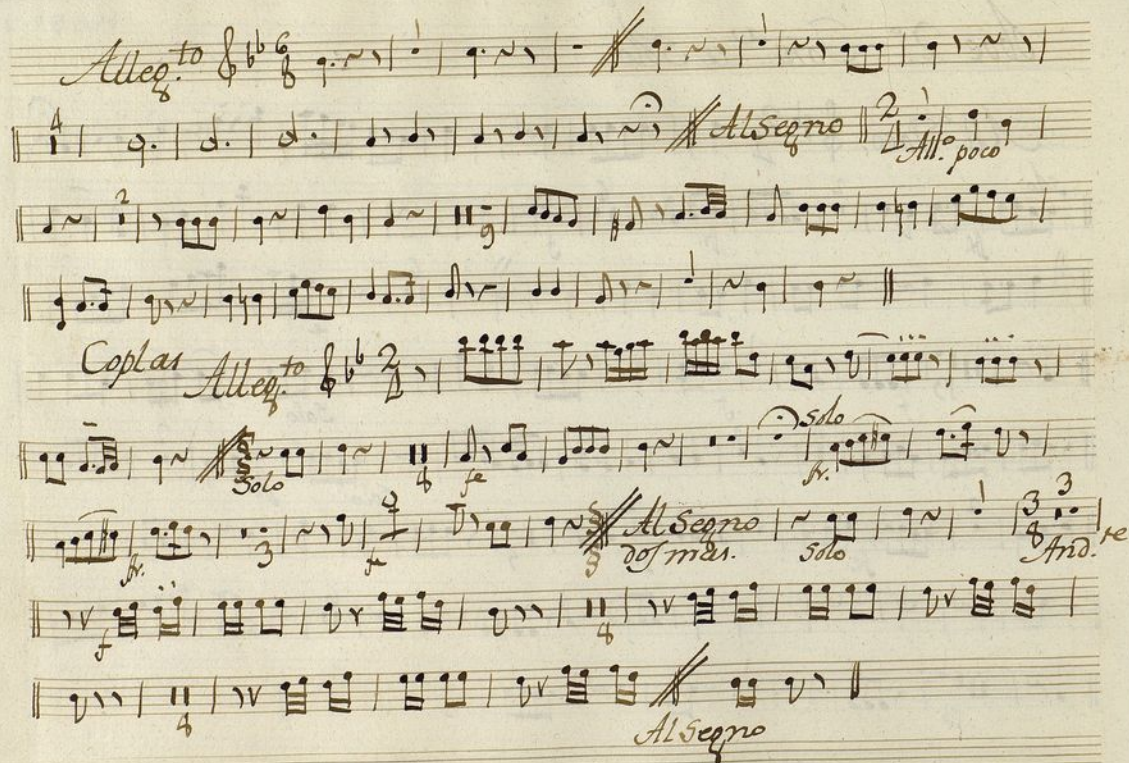 Alleg.to 6 8
4 Al Segno 2 4 All.o poco
2 9
Coplas Alleg.to 2
Solo 8 fe Solo fr.
fr. 3 f Al Segno dos mas. Solo 3 8 3 And.te
f 8
8 Al Segno